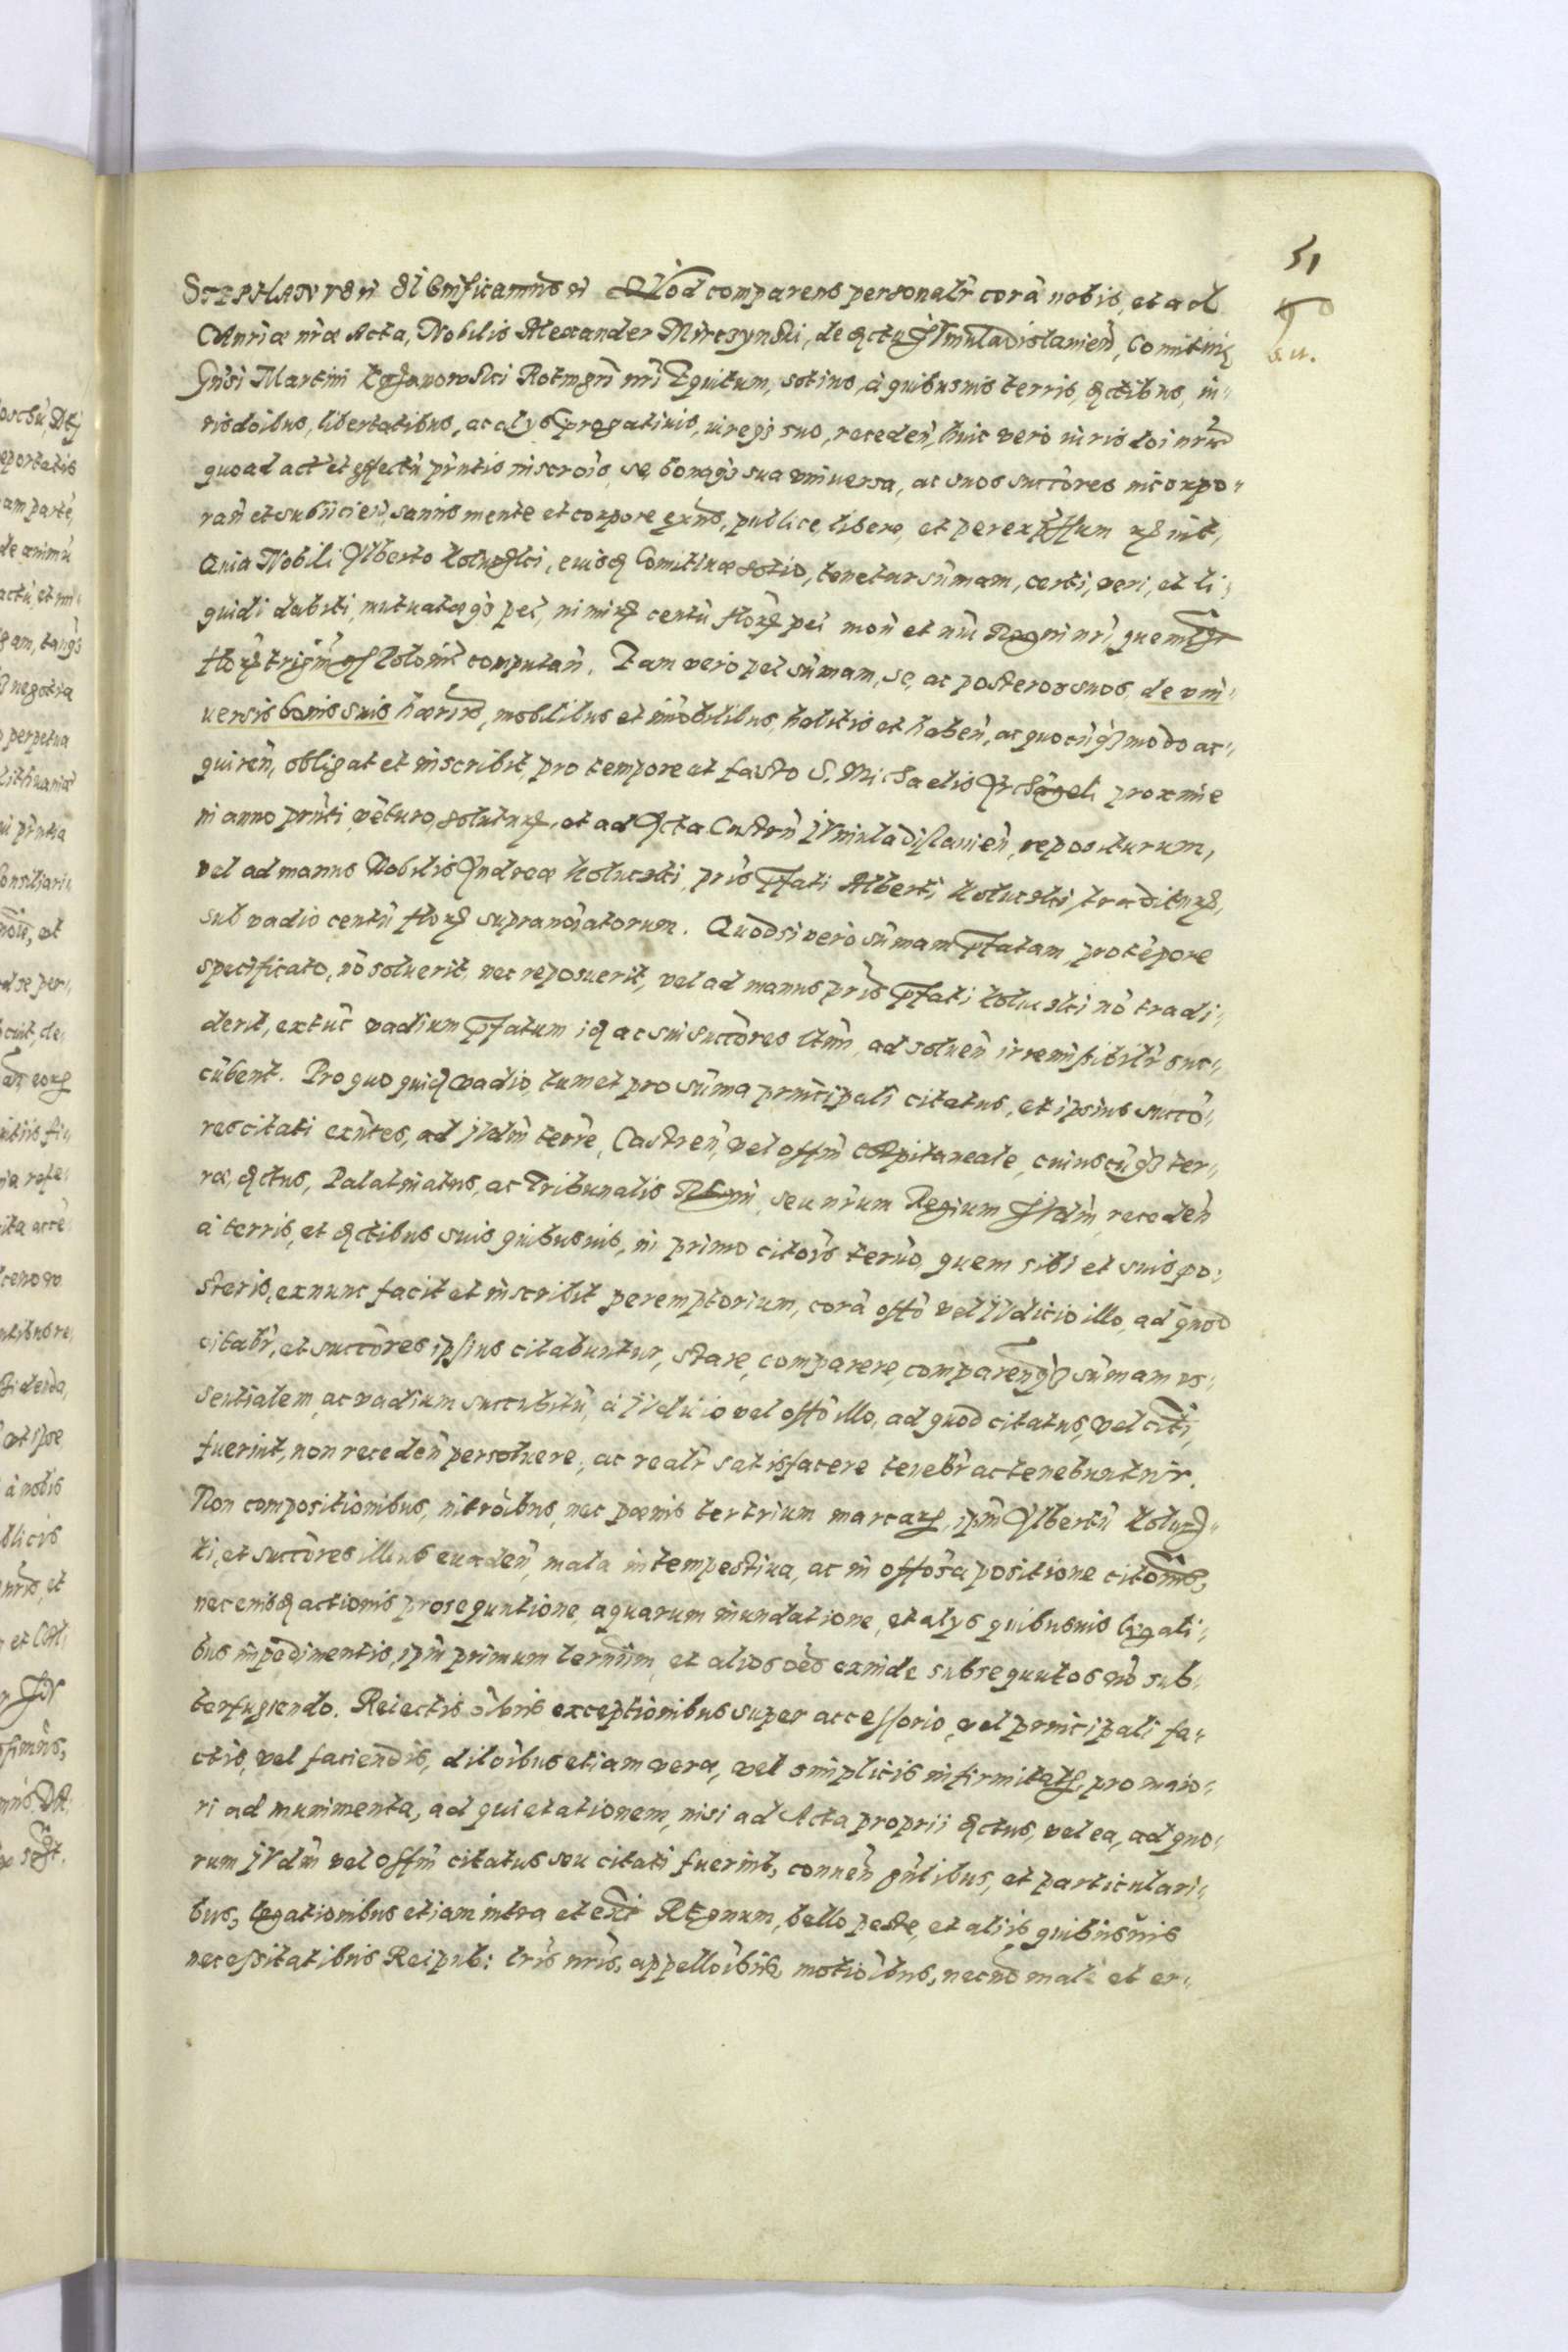 51
STEPHANVS etc Significamus etc Quod comparens personalr̃ corã nobis, et ad
Cancriæ nr̃æ Acta, Nobilis Alexander Mirczynski, de dꝛctu Juniuladislauien̄, Comitiuæ
Gñsi Martini Kazanowski Rotmgrī nr̃i Equitum, sotius, à quibusuis terris, dꝛctibus, iu-
risdõibus, libertatibus, ac alys prꝛogatiuis, iureqꝫ suo, receden̄, huic vero iurisdõi nr̃æ
quoad actũ et effectũ pr̃ntis inscrõis, se, bonaqꝫ sua vniuersa, ac suos succõres incorpo-
ran̄ et subiicien̄, sanus mente et corpore exñs, publice, libere, et per expressum rꝛnit,
Quia Nobili Alberto Kolucki, eiusd Comitiuæ sotio, tenetur sũmam, certi, veri, et li-
quidi debiti, mutuatæqꝫ pec̄, nimirꝝ centũ florꝝ pec̄ mon̄ et nũi Regni nr̃i, quemlt
florꝝ trigin̄ gꝛ Polonic̄ computan̄. Eam vero pec̄ sũmam, se, ac posteros suos, de vni-
uersis bonis suis hæredꝛ, mobilibus et im̃obilibus, habitis et haben̄, ac quocũqꝫ modo ac-
quiren̄, obligat et inscribit, pro tempore et festo S. Michaelis Archãgeli proxime
in anno pr̃nti, vẽturo, soluturꝝ, et ad Acta Castrn̄ Juniuladislauien̄, repositurum,
vel ad manus Nobilis Andreæ Kolucki, pr̃is prꝛfati Alberti Kolucki, traditurꝝ,
sub vadio centũ florꝝ supranõiatorum. Quodsi vero sũmam prꝛfatam, pro tẽpore
specificato, nõ soluerit, nec reposuerit, vel ad manus pr̃is prꝛfati Kolucki nõ tradi-
derit, extũc vadium prꝛfatum id ac sui succõres ltimi, ad soluen̄ irremissibilr̃ suc-
cũbent. Pro quo quid vadio, tum et pro sũma principali citatus, et ipsius succõ-
res citati exñtes, ad Judm̄ terre, Castren̄, vel offm̄ Capitaneale, cuiuscũqꝫ ter-
ræ, dꝛctus, Palatinatus, ac Tribunalis Regni, seu nr̃um Regium Judm̄, receden̄
à terris, et dꝛctibus suis quibusuis, in primo citõis termo, quem sibi et suis po-
steris, exnunc facit et inscribit peremptorium, corã offo vel Judicio illo, ad quod
citabr̃, et succõres ipsius citabuntur, stare, comparere, comparendoqꝫ sũmam es-
sentialem, ac vadium succubitũ, à Judicio vel offo illo, ad quod citatus, vel citi,
fuerint, non receden̄ persoluere, ac realr̃ satisfacere tenebr̃ ac tenebuntur.
Non compositionibus, nitrõibus, nec pœnis tertrium marcarꝝ, ipm̄ Albertũ Koluc-
ki, et succõres illius euaden̄, mala intempestiua, ac in offõsa positione citõnis,
nec eiusd actionis prosequutione, aquarum inundatione, et alys quibusuis legali-
bus impedimentis, ipm̄ primum termim, et alios oẽs exinde subsequutos nõ sub-
terfugiendo. Reiectis õibus exceptionibus super accessorio, vel principali fa-
ctis, vel faciendis, dilõibus etiam veræ, vel simplicis infirmitatꝫ, pro maio-
ri ad munimenta, ad quietationem, nisi ad Acta proprii dꝛctus, vel ea, ad quo-
rum Judm̄ vel offm̄ citatus seu citati fuerint, conuen̄ gñlibus, et particulari-
bus, legationibus etiam intra et ext̄ Regnum, bello peste, et aliis quibusuis
necessitatibus Reipub: lr̃is nr̃is, appellõibus, motiõibus, necnõ male et er-